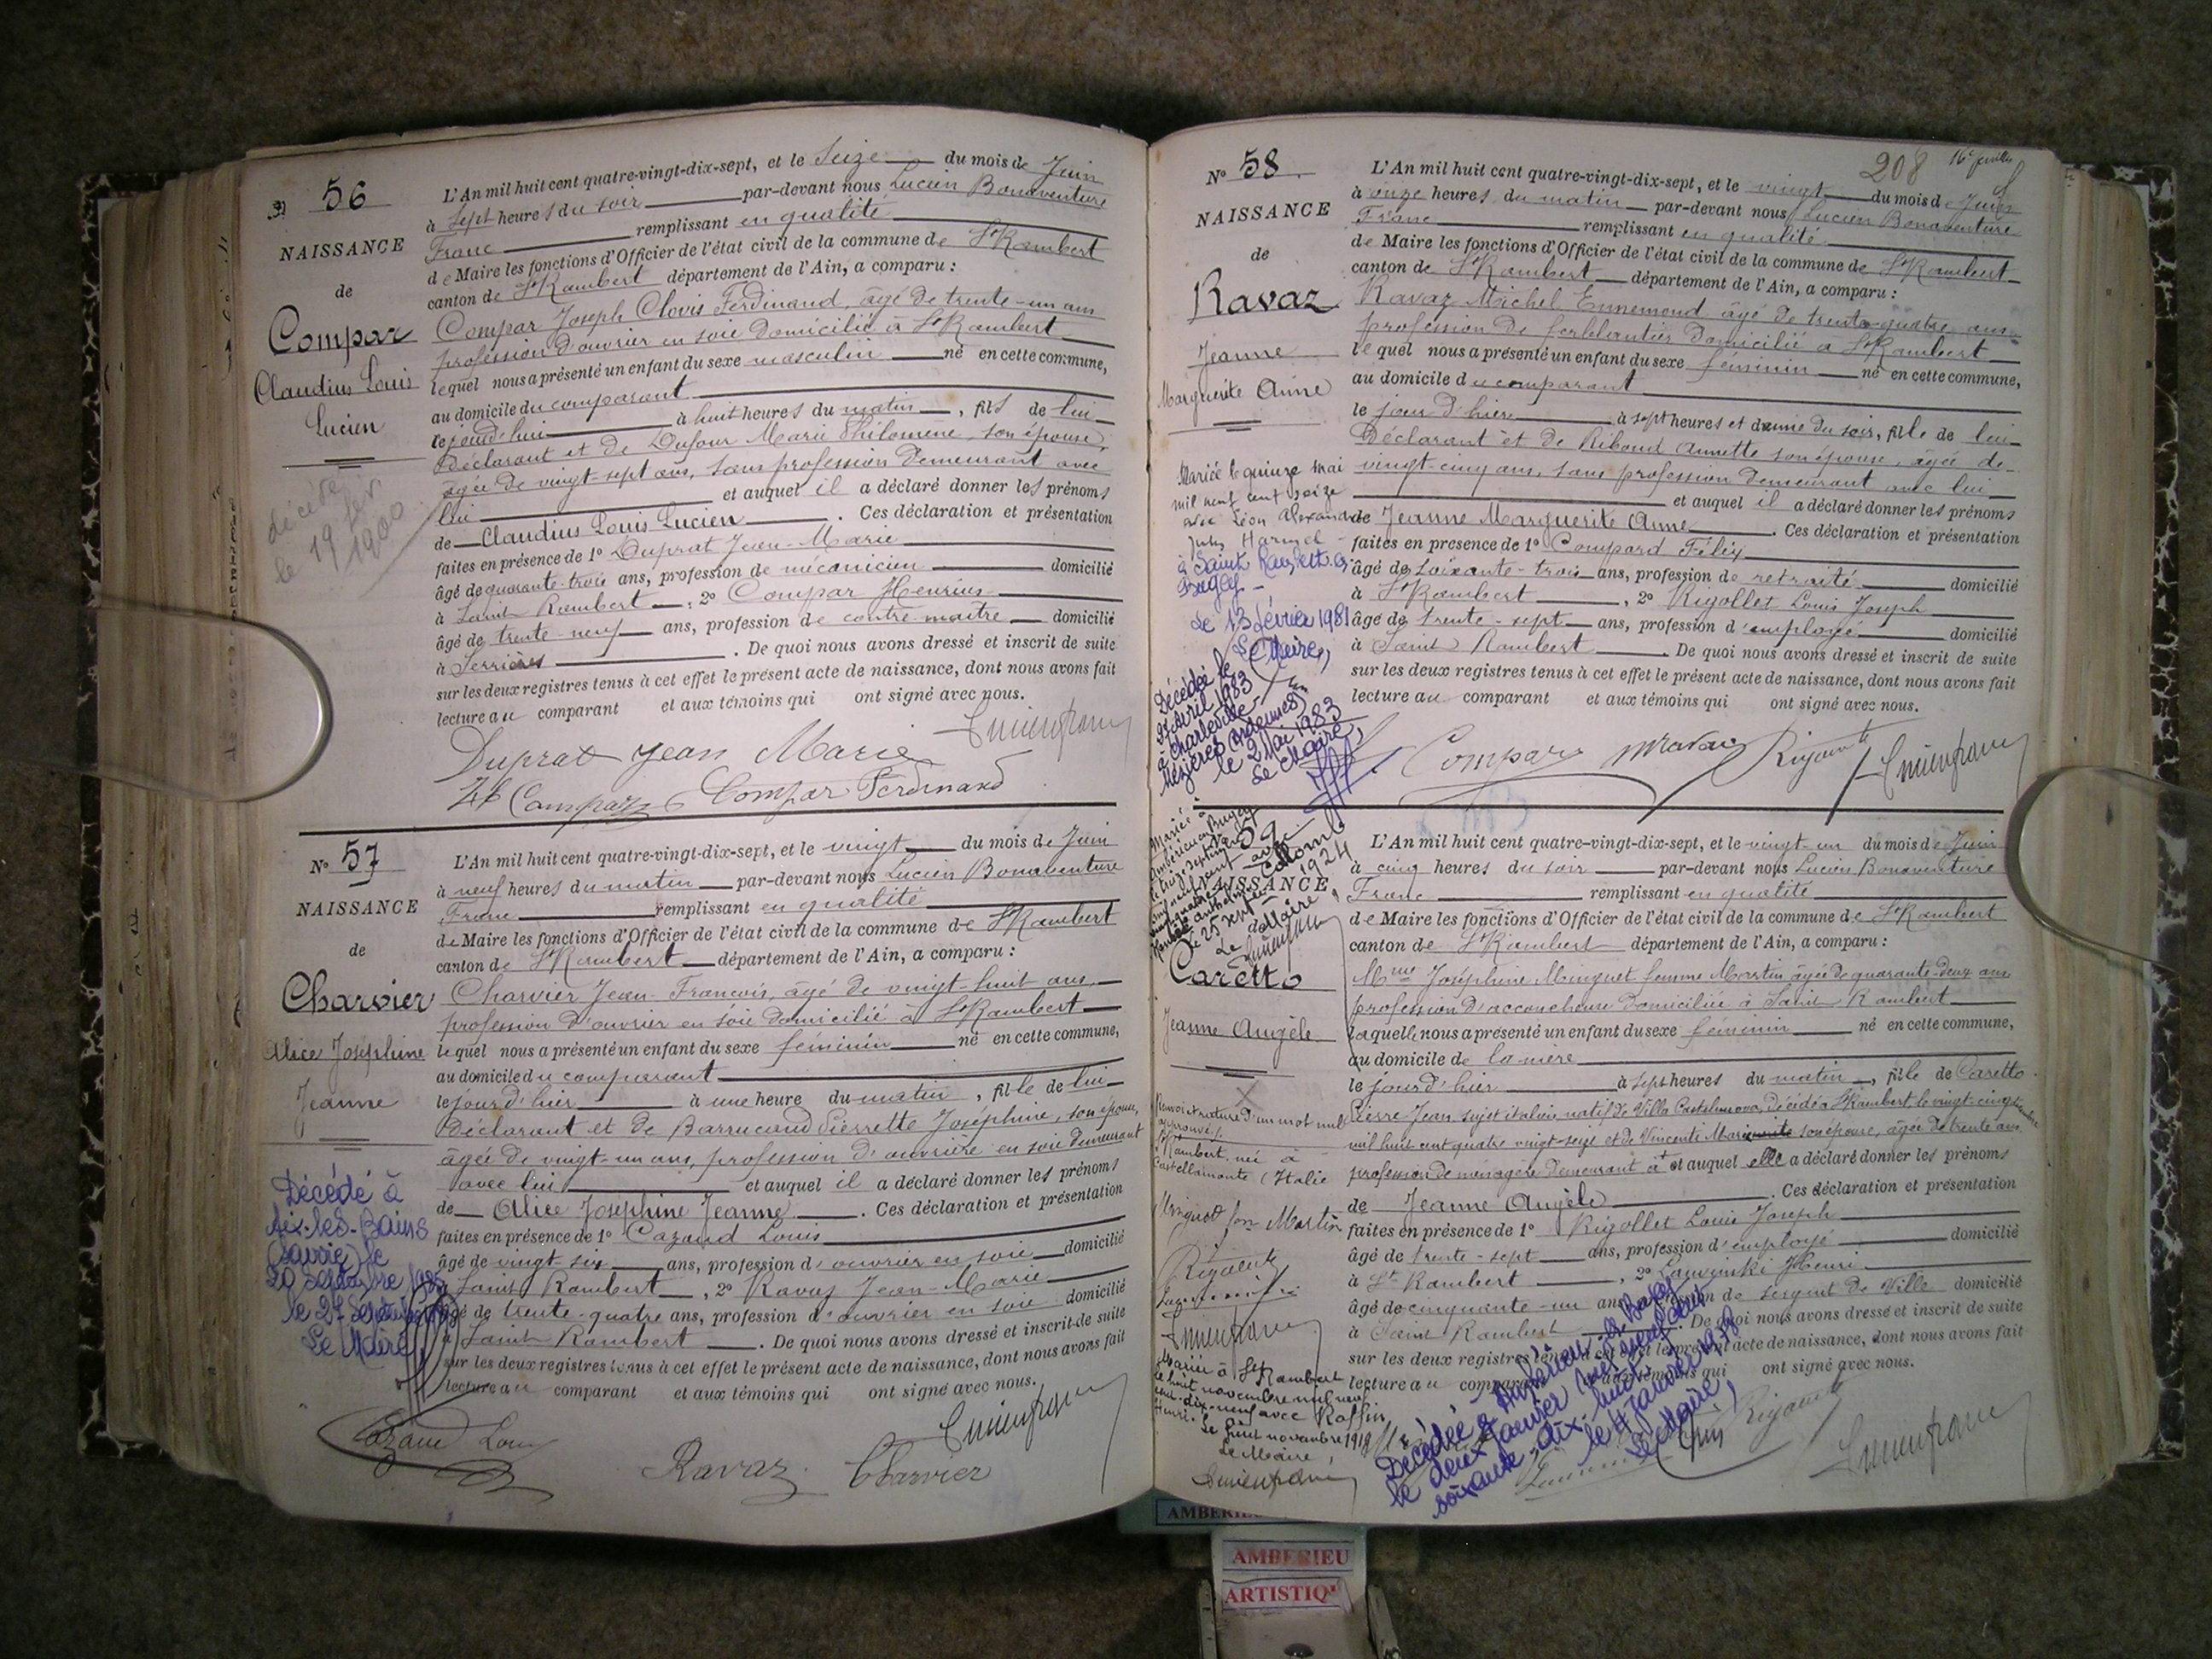 56
NAISSANCE
de
Compar
Claudius Louis
Lucien
décédé
le 19
1900
L'An mil huit cent quatre-vingt-dix-sept, et le Seize du mois de Juin
à sept heures du soir par-devant nous Lucien Bonaventure
Franc remplissant en qualité
de Maire les fonctions d'Officier de l'état civil de la commune de St Rambert
canton de St Rambert département de l'Ain, a comparu :
Compar Joseph Clovis Ferdinand, âgé de trente-un ans
profession d'ouvrier en soie domicilié à St Rambert
lequel nous a présenté un enfant du sexe masculin né en cette commune,
au domicile du comparant
le jourd'hui à huit heures du matin, fils de lui
Déclarant et de Dufour Marie Philomène, son épouse,
âgée de vingt-sept ans, sans profession demeurant avec
lui et auquel il a déclaré donner les prénoms
de Claudius Louis Lucien. Ces déclaration et présentation
faites en présence de 1° Duprat Jean-Marie
âgé de quarante-trois ans, profession de mécanicien domicilié
à Saint Rambert, 2° Compar Henrius
âgé de trente-neuf ans, profession de contre-maître domicilié
à Serrières. De quoi nous avons dressé et inscrit de suite
sur les deux registres tenus à cet effet le présent acte de naissance, dont nous avons fait
lecture au comparant et aux témoins qui ont signé avec nous.
Duprat Jean Marie
Compar Compar Ferdinand
N° 57
NAISSANCE
de
Charvier
Alice Joséphine
Jeanne
Décédé à
Aix-les-Bains
(Savoie) le
20 Septembre 1985
le 27 Septembre
Le Maire
L'An mil huit cent quatre-vingt-dix-sept, et le vingt du mois de Juin
à neuf heures du matin par-devant nous Lucien Bonaventure
Franc remplissant en qualité
de Maire les fonctions d'Officier de l'état civil de la commune de St Rambert
canton de St Rambert département de l'Ain, a comparu :
Charvier Jean-François, âgé de vingt-huit ans
profession d'ouvrier en soie domicilié à St Rambert
lequel nous a présenté un enfant du sexe féminin né en cette commune,
au domicile du comparant
le jour d'hier à une heure du matin, fille de lui
Déclarant et de Barrucand Pierrette Joséphine, son épouse,
âgée de vingt-un ans, profession d'ouvrière en soie demeurant
avec lui et auquel il a déclaré donner les prénoms
de Alice Joséphine Jeanne. Ces déclaration et présentation
faites en présence de 1° Cazaud Louis
âgé de vingt-six ans, profession d'ouvrier en soie domicilié
à Saint Rambert, 2° Ravaz Jean-Marie
âgé de trente-quatre ans, profession d'ouvrier en soie domicilié
à Saint Rambert. De quoi nous avons dressé et inscrit de suite
sur les deux registres tenus à cet effet le présent acte de naissance, dont nous avons fait
lecture au comparant et aux témoins qui ont signé avec nous.
Ravaz Charvier
208
N° 58
NAISSANCE
de
Ravaz
Jeanne
Marguerite Anne
Mariée le quinze mai
mil neuf cent seize
avec Léon Alexandre
Jules Harmel
à Saint Rambert en
Bugey
Le 13 février 1981
Le Maire,
Décédée le
27 avril 1983
à Charleville-
Mézières (Ardennes)
le 2 Mai 1983
Le Maire,
L'An mil huit cent quatre-vingt-dix-sept, et le vingt du mois de Juin
à onze heures du matin par-devant nous Lucien Bonaventure
Franc remplissant en qualité
de Maire les fonctions d'Officier de l'état civil de la commune de St Rambert
canton de St Rambert département de l'Ain, a comparu :
Ravaz Michel Ennemond âgé de trente-quatre ans
profession de ferblantier domicilié à St Rambert
lequel nous a présenté un enfant du sexe féminin né en cette commune,
au domicile du comparant
le jour d'hier à sept heures et demie du soir, fille de lui
Déclarant et de Riboud Annette son épouse, âgée de
vingt-cinq ans, sans profession demeurant avec lui
et auquel il a déclaré donner les prénoms
de Jeanne Marguerite Anne. Ces déclaration et présentation
faites en présence de 1° Compard Félix
âgé de soixante-trois ans, profession de retraité domicilié
à St Rambert, 2° Rigollet Louis Joseph
âgé de trente-sept ans, profession d'employé domicilié
à Saint Rambert. De quoi nous avons dressé et inscrit de suite
sur les deux registres tenus à cet effet le présent acte de naissance, dont nous avons fait
lecture au comparant et aux témoins qui ont signé avec nous.
Compar
59
NAISSANCE
Caretto
Jeanne Angèle
Mariée à
Ambérieu en Bugey
Colomb
le 25 septembre 1924
Le Maire,
Renvoi et rature d'un mot nul
approuvés
St Rambert, née à
Castellamonte (Italie
Martin
Mariée à St Rambert
le huit novembre mil neuf
cent dix-neuf avec Raffin
Henri.
Le huit novembre 1919
Le Maire,
L'An mil huit cent quatre-vingt-dix-sept, et le vingt-un du mois de Juin
à cinq heures du soir par-devant nous Lucien Bonaventure
Franc remplissant en qualité
de Maire les fonctions d'Officier de l'état civil de la commune de St Rambert
canton de St Rambert département de l'Ain, a comparu :
Mme Joséphine Minguet femme Martin âgée de quarante-deux ans
profession d'accoucheuse domiciliée à Saint Rambert
laquelle nous a présenté un enfant du sexe féminin né en cette commune,
au domicile de la mère
le jour d'hier à sept heures du matin, fille de Caretto
Pierre Jean, sujet italien, natif de Villa Castelnuovo, décédé à St Rambert le vingt cinq
mil huit cent quatre vingt-seize et de Vincenti Marie son épouse, âgée de trente ans
profession de ménagère demeurant à et auquel elle a déclaré donner les prénoms
de Jeanne Angèle. Ces déclaration et présentation
faites en présence de 1° Rigollet Louis Joseph
âgé de trente-sept ans, profession d'employé domicilié
à St Rambert, 2° Henri
âgé de cinquante-un ans, profession de sergent de Ville domicilié
à Saint Rambert. De quoi nous avons dressé et inscrit de suite
sur les deux registres tenus à cet effet le présent acte de naissance, dont nous avons fait
lecture au comparant et aux témoins qui ont signé avec nous.
Décédée à Ambérieu-en-Bugey
le deux janvier mil neuf cent
soixante-dix-huit
le 4 Janvier 1978
Le Maire,
AMBERIEU
AMBERIEU
ARTISTIQ